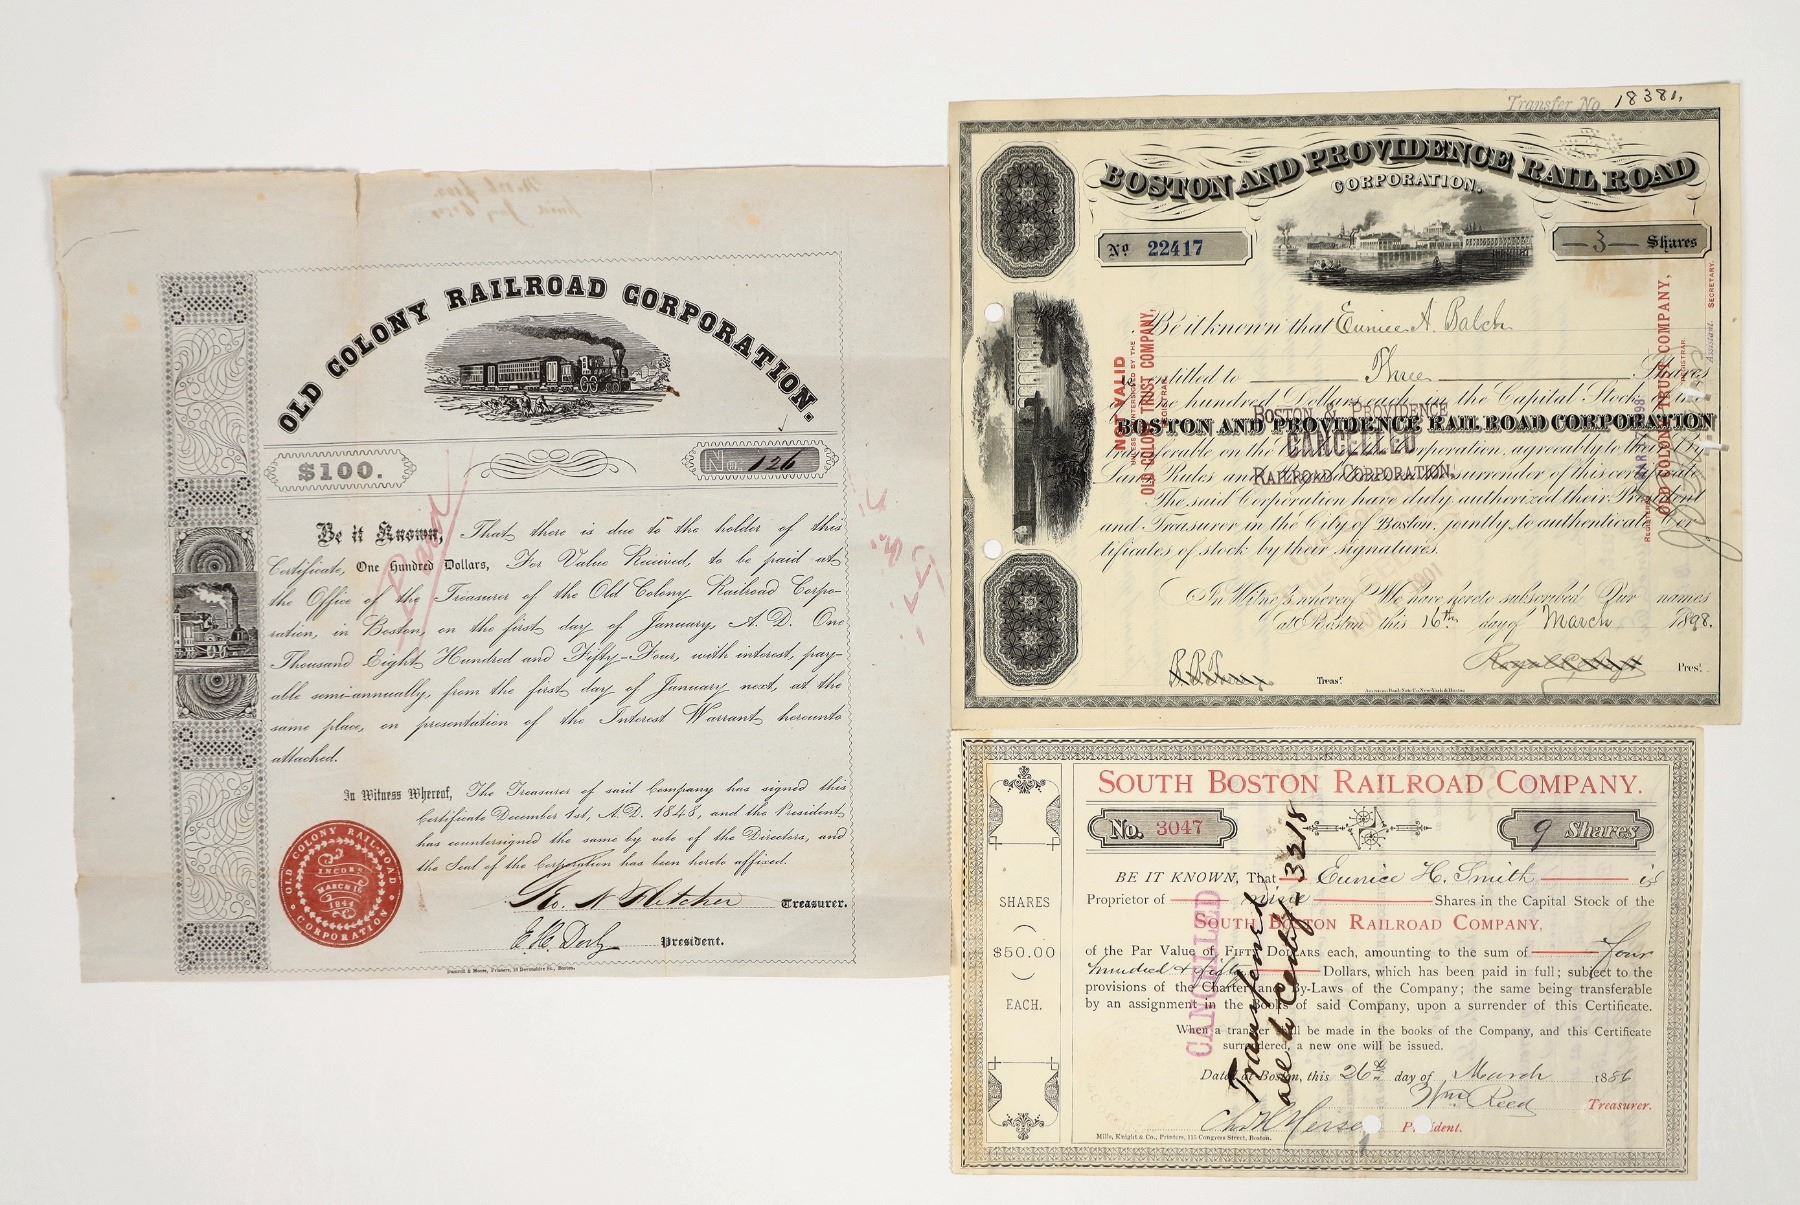 OLD COLONY RAILROAD CORPORATION.
$100.
No. 126
Paid
Be it Known, That there is due to the holder of this
Certificate, One Hundred Dollars, For Value Received, to be paid at
the Office of the Treasurer of the Old Colony Railroad Corpo-
ration, in Boston, on the first day of January, A. D. One
Thousand Eight Hundred and Fifty-Four, with interest, pay-
able semi-annually, from the first day of January next, at the
same place, on presentation of the Interest Warrant hereunto
attached.
In Witness Whereof, The Treasurer of said Company has signed this
Certificate December 1st, A. D. 1848, and the President
has countersigned the same by vote of the Directors, and
the Seal of the Corporation has been hereto affixed.
Treasurer.
President.
OLD COLONY RAIL-ROAD CORPORATION
INCORP.
MARCH 16
1844
Printers, 16 Devonshire St., Boston.
Transfer No. 18381.
BOSTON AND PROVIDENCE RAIL ROAD
CORPORATION.
No. 22417
3 Shares
Be it known that Eunice A. Balch
entitled to Three Shares
one hundred Dollars each in the Capital Stock
BOSTON AND PROVIDENCE RAIL ROAD CORPORATION
surrender of this certificate
The said Corporation have duly authorized their President
and Treasurer in the City of Boston, jointly, to authenticate cer
tificates of stock by their signatures.
In Witness whereof We have hereto subscribed Our names
at Boston this 16th day of March 1898.
Treasr.
Prest.
American Bank Note Co. New York & Boston
NOT VALID
UNLESS COUNTERSIGNED BY THE
OLD COLONY TRUST COMPANY,
REGISTRAR.
BOSTON & PROVIDENCE
CANCELLED
RAILROAD CORPORATION.
OLD COLONY TRUST COMPANY,
REGISTRAR.
Assistant SECRETARY.
SOUTH BOSTON RAILROAD COMPANY.
No. 3047
9 Shares
BE IT KNOWN, That Eunice H. Smith is
Proprietor of nine Shares in the Capital Stock of the
SOUTH BOSTON RAILROAD COMPANY,
of the Par Value of FIFTY DOLLARS each, amounting to the sum of four
hundred & fifty Dollars, which has been paid in full; subject to the
provisions of the Charter and By-Laws of the Company; the same being transferable
by an assignment in the Books of said Company, upon a surrender of this Certificate.
When a transfer shall be made in the books of the Company, and this Certificate
surrendered, a new one will be issued.
Dated at Boston, this 26th day of March 1886
Wm Reed Treasurer.
President.
Mills, Knight & Co., Printers, 115 Congress Street, Boston.
SHARES
$50.00
EACH.
CANCELLED
Transferred
3218